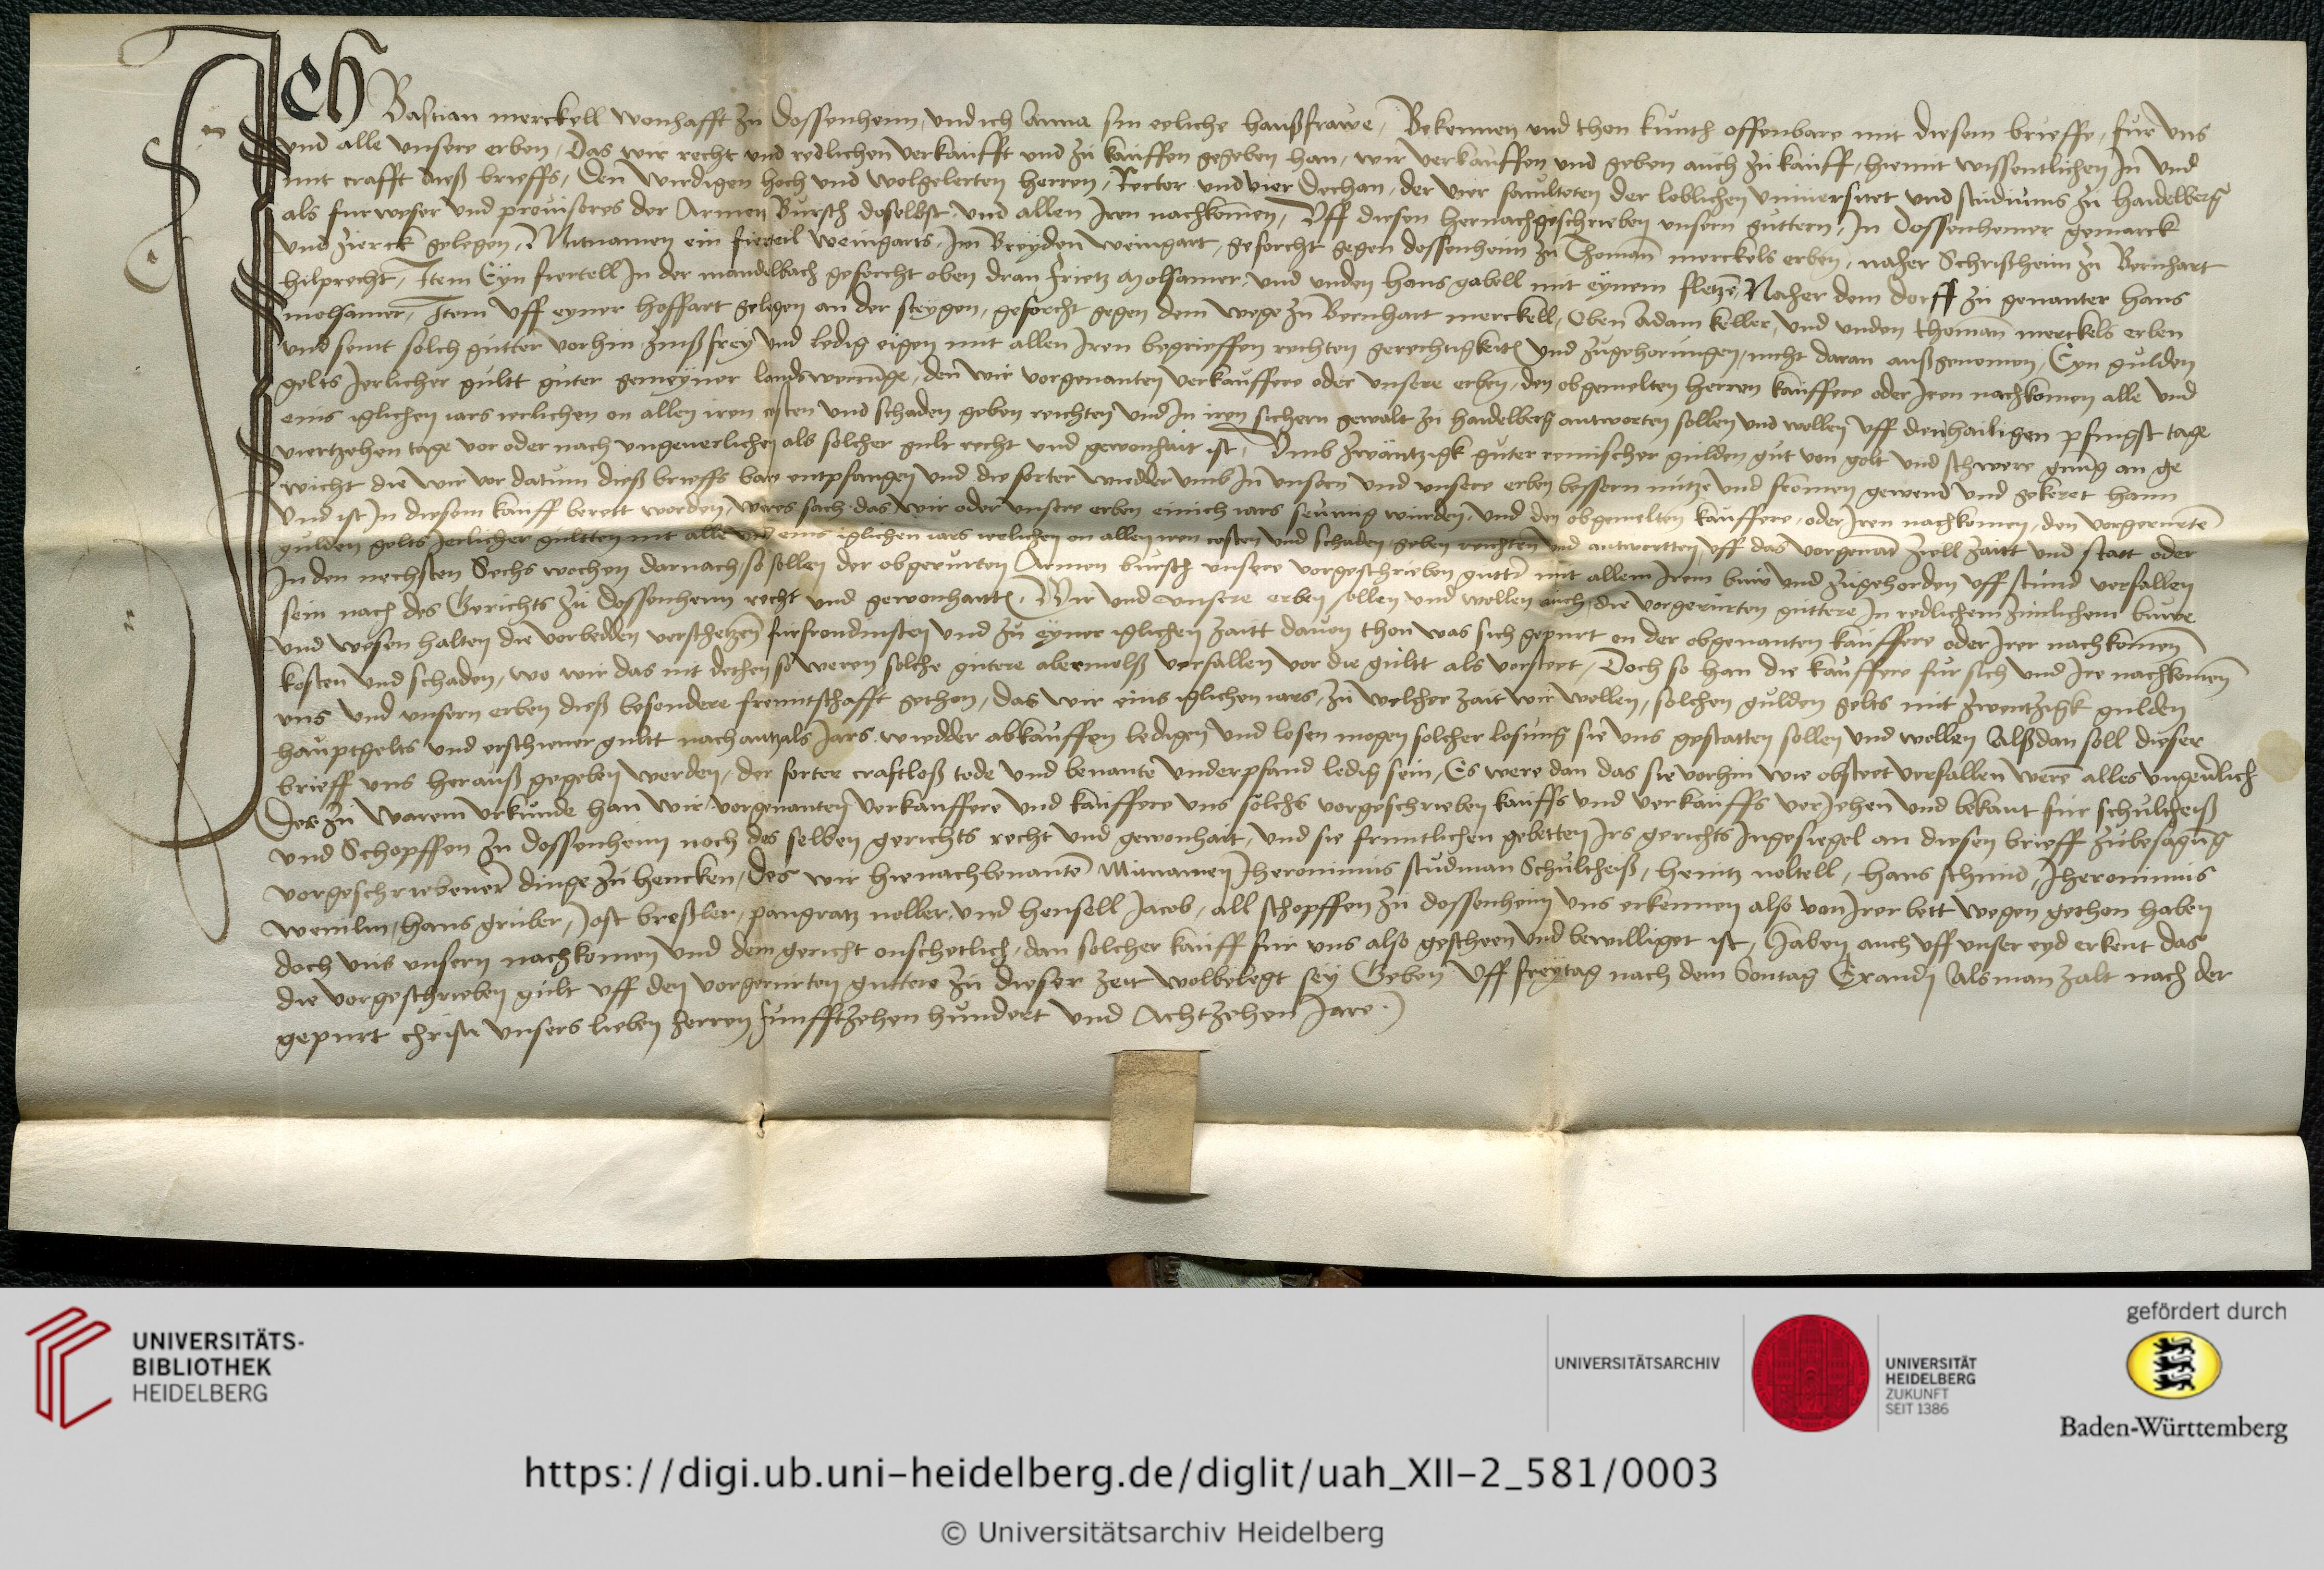 Ich Bastian merckell wonhafft zu Dossenheim, und ich Anna sin eeliche haußfrawe, Bekennen und thon kunth offenbare mit diesem brieffe, fur uns
und alle unsere erben, Das wir recht und redlichen verkaufft und zu kauffen gegeben han, wir verkauffen und geben auch zu kauff, hiemit wissentlichen In und
mit crafft dieß brieffs, Den wirdigen hoch und wolgelerten herren, Rector und vier Dechan, der vier faculteten der loblichen universitet und studiums zu haidelberg
als furweser und provisores der Armen Bursch daselbst, und allen Iren nachkomen, Uff diesen hernachgeschrieben unsern guttern, In Dossenheimer gemarck
und zierck gelegen, Mitnamen ein fierteil weingarts, Im Breyden weingart, geforcht gegen dossenheim zu Thoman merckels erben, naher Schrißheim zu Bernhart
hilprecht, Item Eyn fiertell In der mandelbach geforcht oben dran Frietz molsamer, und unden hans gabell mit eynem fletze, Naher dem dorff zu genanter hans
molsamer, Item uff eyner hoffart gelegen an der steygen, geforcht gegen dem wege zu Bernhart merckell, Oben Adam keller, und unden thoman merckels erben
und semt solch gutter vorhin zinß frey und ledig eigen mit allen Iren begrieffen rechten gerechtigkeit und zugehorungen, nicht daran außgenomen, Eyn gulden
gelts Jerlicher gultt guter gemeyner landswerunge, den wir vorgenanten verkauffere oder unsere erben, den obgemelten herren kauffere oder Iren nachkomen alle und
eins iglichen iars ierlichen on allen iren costen und schaden geben reichten und In iren sichern gewalt zu haidelberg antworten sollen und wollen uff den hailigen pfingst tage
viertzehen tage vor oder nach ungeverlichen als solcher gult recht und gewonhait ist, Umb zwäntzigk guter reinischer gulden gut von golt und schwere gnug an ge
wicht die wir vor datum dieß brieffs bare entpfangen und die forter wiedder umb In unsern und unsere erben bessern nutze und fromen gewend und gekeret hann
Und ist In diesem kauff berett worden, weres sach das wir oder unsere erben einich iars seumig wurden, und den obgemelten kauffere, oder Iren nachkomen, den vorgerurte
gulden gelts Jerlicher gultten nit alle und eins iglichen iars ierlichen on allen iren costen und schaden geben reichten und antwortten, uff das vorgenant ziell zaitt und statt oder
In den nechsten Sechs wochen darnach, so sollen der obgerurten Armen bursch unsere vorgeschrieben gutter mit allem Irem buwe und zugehorden uff stund verfallen
sein nach des Gerichts zu Dossenheim recht und gewonhait, Wir und unsere erben sollen und wollen auch die vorgerurten guttere In redlichem zimlichem buwe
und wesen halten die verbedden verschetzen furfrondinsten und zu eyner iglichen zaitt davon thon was sich gepurt on der obgenanten kauffere oder Irer nachkomen
kosten und schaden, wo wir das nit dethen so weren solche gutere abermolß verfallen vor die gultt als versteet, Doch so han die kauffere fur sich und Ire nachkomen
uns und unsern erben dieß besondere fruntschafft gethon, das wir eins iglichen iars, zu welcher zait wir wollen, solchen gulden gelts mit zwentzigk gulden
hauptgelts und erschiener gultt nach antzals Jars wiedder abkauffen ledigen und losen mogen solcher losung sie uns gestatten sollen und wollen Alßdan soll dieser
brieff uns herauß gegeben werden, der forter craftloß tode und benante underpfand ledig sein, Es were dan das sie vorhin wie obsteet verfallen were alles ungeverlich
Des zu warem urkunde han wir vorgenanten verkauffere und kauffere uns solchs vorgeschrieben kauffs und verkauffs verjehen und bekant fur schulcheiß
und Schopffen zu dossenheim noch des selben gerichts recht und gewonhait, und sie fruntlichen gebetten Irs gerichts Ingesiegel an diesen brieff zu besagung
vorgeschriebener dinge zu hencken, Des wir hienachbenante Mitnamen Iheronimus studman Schultheiß, heintz noltell, hans schmid, Iheronimus
wemlin, hans gruber, Jost breßler, pangratz noller, und hensell Jacob, all schopffen zu dossenheim uns erkennen also von Irer bett wegen gethon haben
doch uns unsern nachkomen und dem gericht onschetlich, dan solcher kauff fur uns also gescheen und bewilliget ist, Haben auch uff unser eyd erkent das
die vorgeschrieben gult uff den vorgerurten guttere zu dieser zeit wolbelegt sey Geben Uff freytag nach dem Sontag Exandi Als man zalt nach der
gepurt christi unsers lieben herren funfftzehen hundert und Achtzehen Jare
UNIVERSITÄTS-
BIBLIOTHEK
HEIDELBERG
UNIVERSITÄTSARCHIV
UNIVERSITÄT
HEIDELBERG
ZUKUNFT
SEIT 1386
gefördert durch
Baden-Württemberg
https://digi.ub.uni-heidelberg.de/diglit/uah_XII-2_581/0003
© Universitätsarchiv Heidelberg